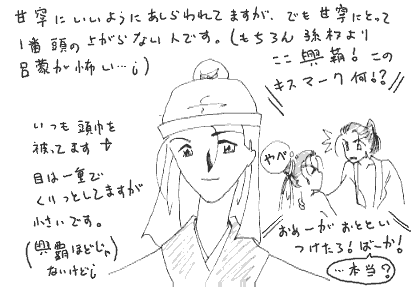 甘寧にいいようにあしらわれてますが、でも甘寧にとって
1番頭の上がらない人です。(もちろん孫权より
呂蒙が怖い…;)
ここ 興覇!この
キスマーク何!?
いつも頭巾を
被ってます
目は一重で
くりっとしてますが
小さいです。
(興覇ほどじゃ
ないけど;
やべ
おめーがおととい
つけたろ!ばーか!
…本当?